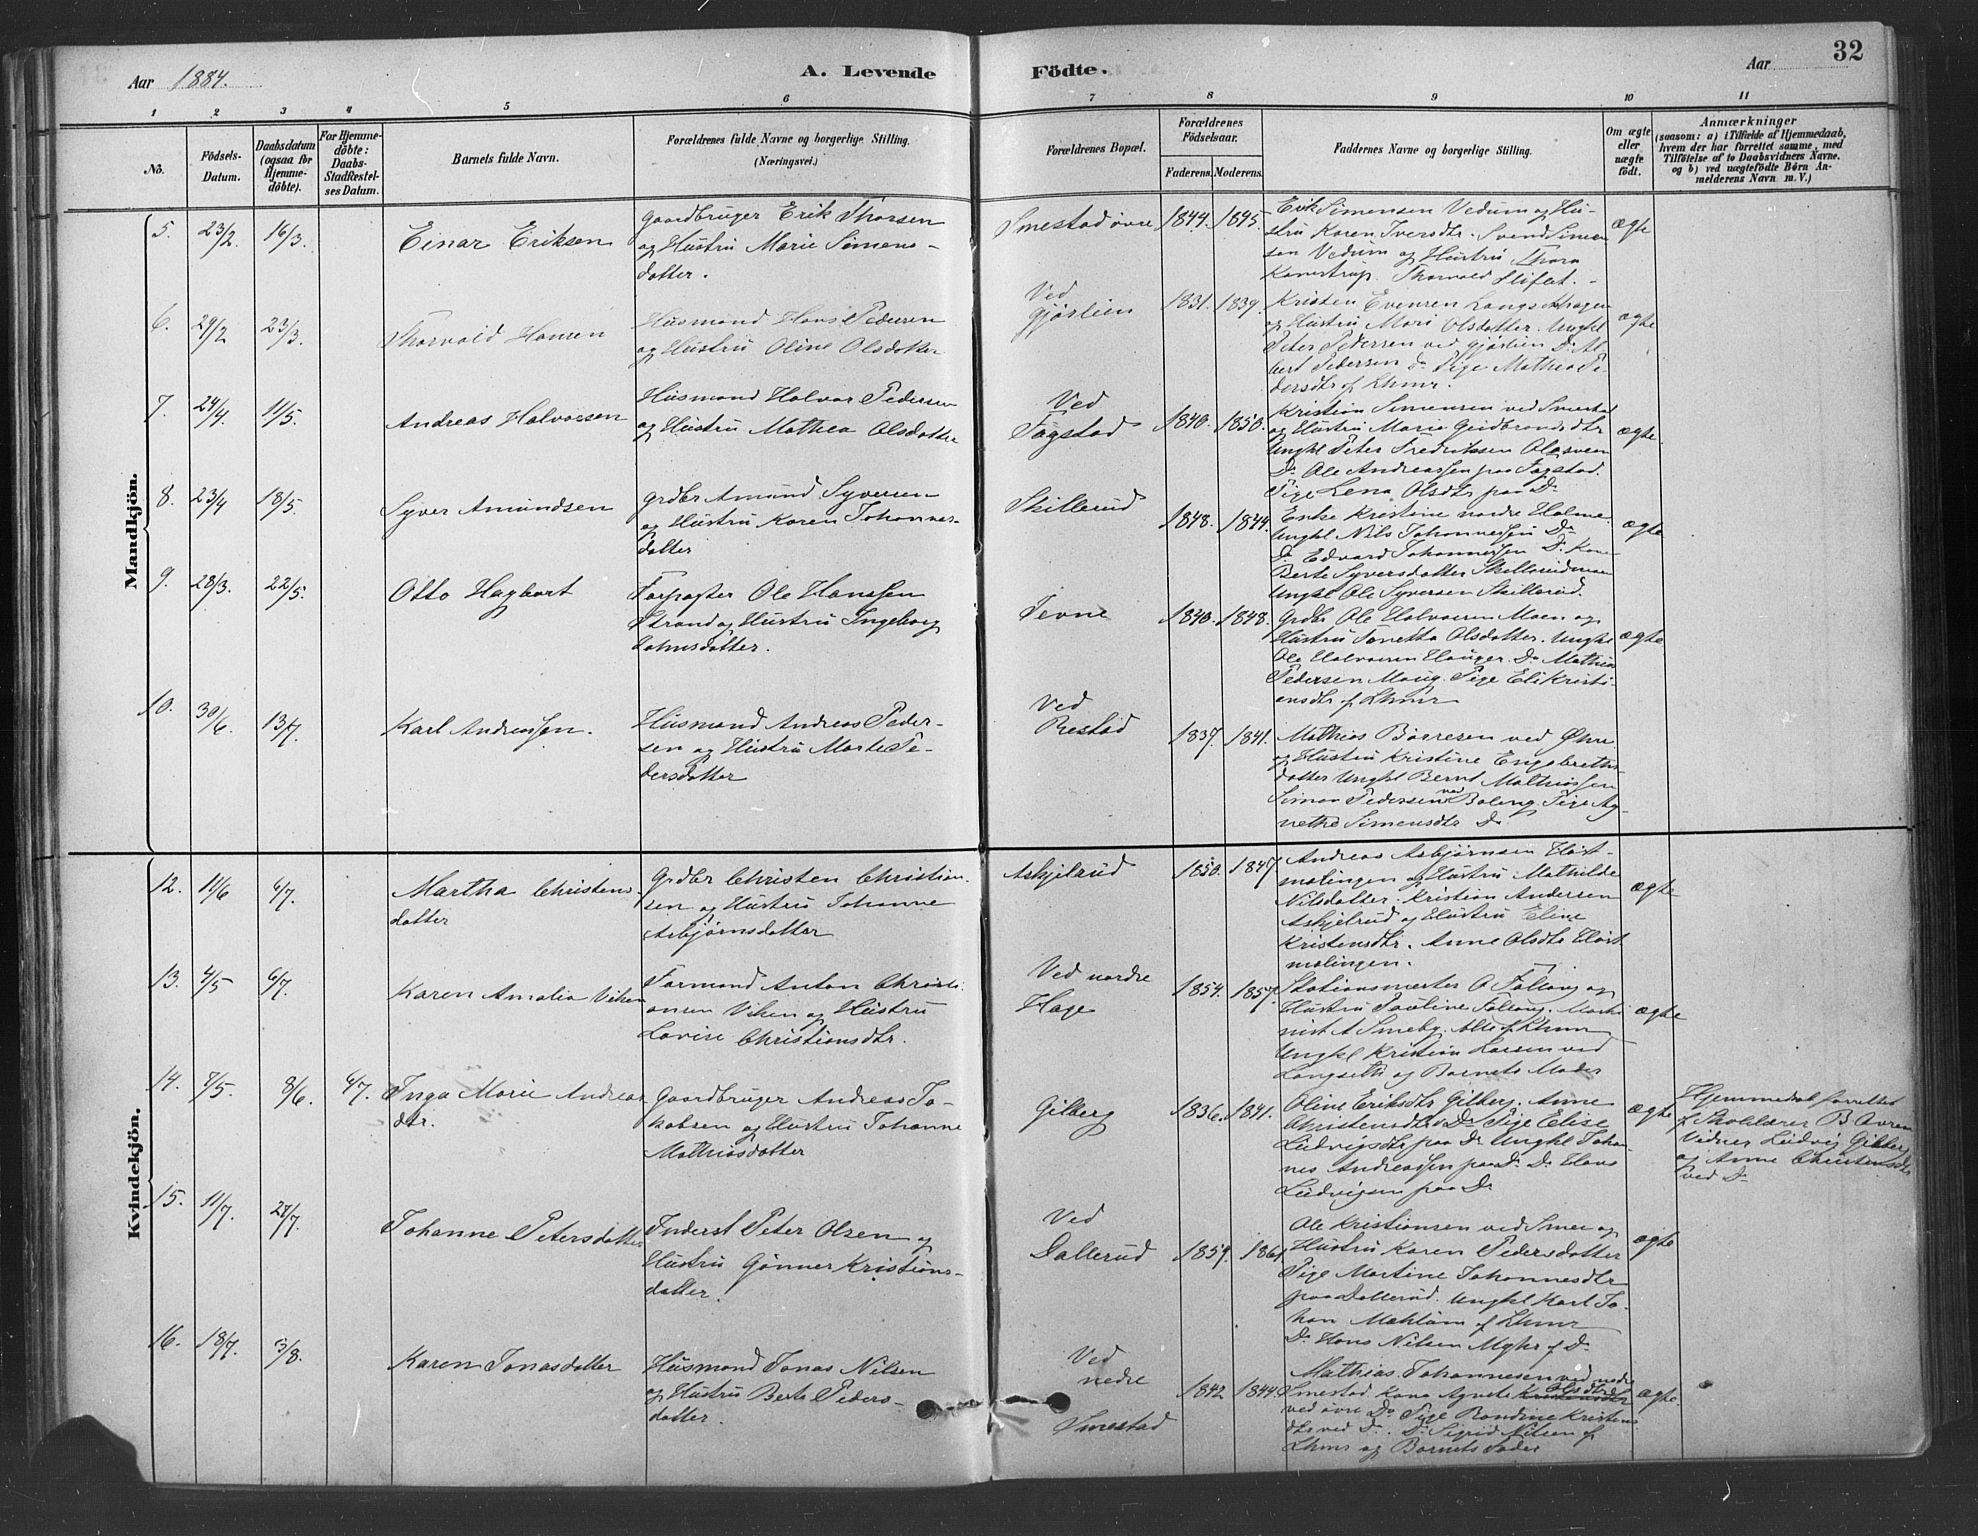 Aar 1884.
A. Levende Födte.
Aar
32
1 2 3 4 5 6 7 8 9 10 11
No.
Födsels-Datum.
Daabsdatum (ogsaa for Hjemme-döbte).
For Hjemme-döbte: Daabs-Stadfæstel-ses Datum.
Barnets fulde Navn.
Forældrenes fulde Navne og borgerlige Stilling. (Næringsvei.)
Forældrenes Bopæl.
Forældrenes Födselsaar.
Faderens. Moderens.
Faddernes Navne og borgerlige Stilling.
Om ægte eller uægte födt.
Anmærkninger
(saasom: a) i Tilfælde af Hjemmedaab, hvem der har forrettet samme, med Tilföielse af to Daabsvidners Navne, og b) ved uægtefödte Börn An-melderens Navn m. V.)
Mandkjön.
5. 23/2. 16/3. Einar Eriksen
Gaardbruger Erik Thorsen
og Hustru Marie Simens-
datter.
Smestad övre 1844. 1845.
Erik Simensen Vedum og Hu-
stru Karen Iversdtr. Svend Simen
sen Vedum og Hustru Thora
Thorvald
ægte
6. 29/2 23/3. Thorvald Hansen
Husmand Hans Pedersen
og Hustru Oline Olsdatter
Ved
Gjørlien 1831. 1839.
Kristen Evensen
og Hustru Mari Olsdatter. Ungkl
Peter Pedersen ved Gjørlien Do Al-
bert Pedersen Do Pige Mathea Pe-
dersdtr af Lhmr.
ægte
7. 24/4 11/5. Andreas Halvorsen
Husmand Halvor Pedersen
og Hustru Mathea Olsdatter
Ved
Fagstad 1840. 1850.
Kristian Simensen ved Smestad
og Hustru Marie Gudbrandsdtr
Ungkl Peter Fredriksen
Do Ole Andreassen paa Fagstad.
Pige Lena Olsdtr paa Do
ægte
8. 23/4 18/5. Syver Amundsen
Grdbr Amund Syversen
og Hustru Karen Johannes-
datter
Skillerud 1848. 1844.
Enke Kristine nordre Holme.
Ungkl Nils Johannessen Do
Do Edvard Johannessen Do Kone
Berte Syversdatter
Ungkl Ole Syversen Skillerud.
ægte
9. 28/3. 22/5. Otto Hagbart
Forpagter Ole Hanssen
Strand og Hustru Ingeborg
Johnsdatter.
Jevne 1840. 1848.
Grdbr Ole Halvorsen Moen og
Hustru Olsdatter. Ungkl
Ole Halvorsen Hauger. Do Mathias
Pedersen Moug. Pige Eli Kristi-
ensdtr af Lhmr
ægte
10. 30/6. 13/7. Karl Andreassen.
Husmand Andreas Peder-
sen og Hustru Marte Pe-
dersdatter
Ved
Restad 1837. 1841.
Mathias Börresen ved Øhre
og Hustru Kristine Engebrets-
datter Ungkl Bernt Mathiassen
Simon Pedersen ved Baleng. Pige Ag-
nethe Simensdtr Do
Kvindekjön.
12. 11/6 6/7. Martha Christens-
datter
Grdbr Christen Christian-
sen og Hustru Johanne
Asbjørnsdatter
Askjelrud 1850. 1847
Andreas Asbjørnsen
og Hustru Mathilde
Nilsdatter. Kristian Andersen
Askjelrud og Hustru Eline
Kristensdtr. Anne Olsdtr
ægte
13. 4/5 6/7. Karen Amalia Viken
Formand Anton Christi-
ansen Viken og Hustru
Lovise Christiansdtr.
Ved nordre
Hage 1854. 1857.
Stationsmester O Fallang og
Hustru Pauline Fallang. Maski
nist A Smeby. Alle af Lhmr
Ungkl Kristian Larsen ved
Langseth og Barnets Moder
ægte
14. 7/5. 8/6. 6/7. Inga Marie Andreas
dtr.
Gaardbruger Andreas Ja-
kobsen og Hustru Johanne
Mathiasdatter
Gilberg 1836. 1841.
Oline Eriksdtr Gilberg. Anne
Christensdtr Do Pige Elise
Ludvigsdtr paa Do Ungkl Johan-
nes Andreassen paa Do. Do Hans
Ludvigsen paa Do
ægte
Hjemmedaab forrettet
af Skolelærer B.
Vidner Ludvig Gilberg
og Anne Christensdtr
ved Do
15. 11/7. 27/7. Johanne Petersdatter
Inderst Peter Olsen og
Hustru Gønner Kristians-
datter.
Ved
Dallerud 1859. 1861
Ole Kristiansen ved Smee og
Hustru Karen Pedersdatter
Pige Martine Johannesdtr
paa Dallerud. Ungkl Karl Jo-
han af Lhmr
Do Hans Nilsen af Do.
ægte
16. 18/7. 3/8. Karen Jonasdatter
Husmand Jonas Nilsen
og Hustru Berte Peders-
datter.
Ved
nedre
Smestad 1842 1844
Mathias Johannesen ved nedre
Smestad. Kona Agnete Olsdtr
ved övre Do Pige Randine Kristens
dtr ved Do. Do Sigrid Nilsen af
Lhmr og Barnets Fader
ægte.